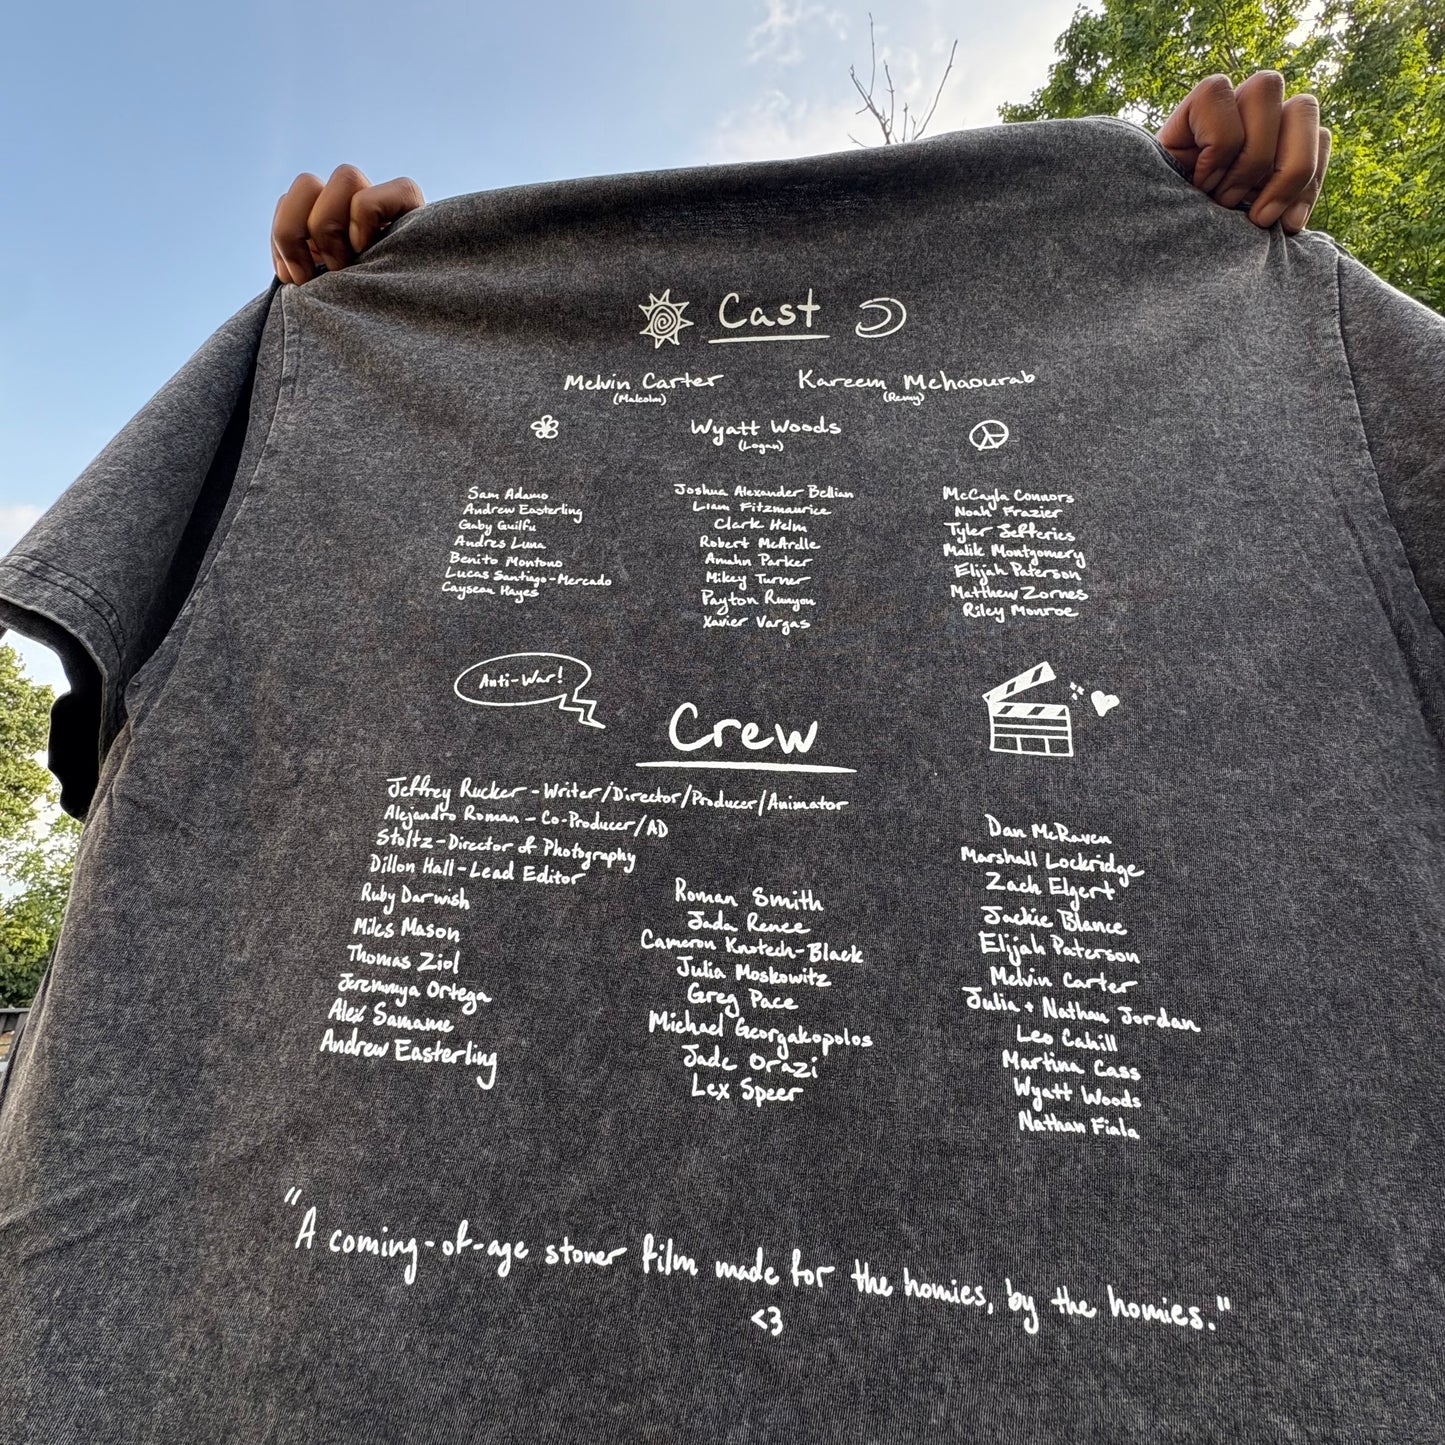 Cast
Melvin Carter
(Malcolm)
Kareem Mchaourab
(Remy)
Wyatt Woods
(Logan)
Sam Adamo
Andrew Easterling
Gaby Guilfu
Andres Luna
Benito Montono
Lucas Santiago-Mercado
Caysean Hayes
Joshua Alexander Bellian
Liam Fitzmaurice
Clark Helm
Robert McArdle
Amahn Parker
Mikey Turner
Payton Runyon
Xavier Vargas
McCayla Connors
Noah Frazier
Tyler Jefferies
Malik Montgomery
Elijah Paterson
Matthew Zornes
Riley Monroe
Anti-War!
Crew
Jeffrey Rucker - Writer/Director/Producer/Animator
Alejandro Roman - Co-Producer/AD
Stoltz - Director of Photography
Dillon Hall - Lead Editor
Ruby Darwish
Miles Mason
Thomas Ziol
Jeremmya Ortega
Alex Samame
Andrew Easterling
Roman Smith
Jada Renee
Cameron Knotech-Black
Julia Moskowitz
Greg Pace
Michael Georgakopolos
Jade Orazi
Lex Speer
Dan McRaven
Marshall Lockridge
Zach Elgert
Jackie Blance
Elijah Paterson
Melvin Carter
Julia + Nathan Jordan
Leo Cahill
Martina Cass
Wyatt Woods
Nathan Fiala
"A coming-of-age stoner film made for the homies, by the homies."
<3